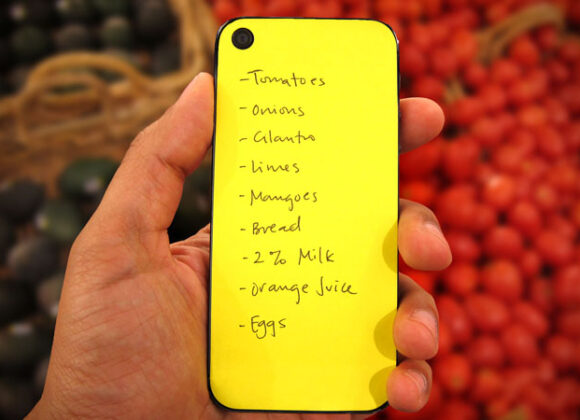 - Tomatoes
- Onions
- Cilantro
- Limes
- Mangoes
- Bread
- 2% Milk
- Orange Juice
- Eggs